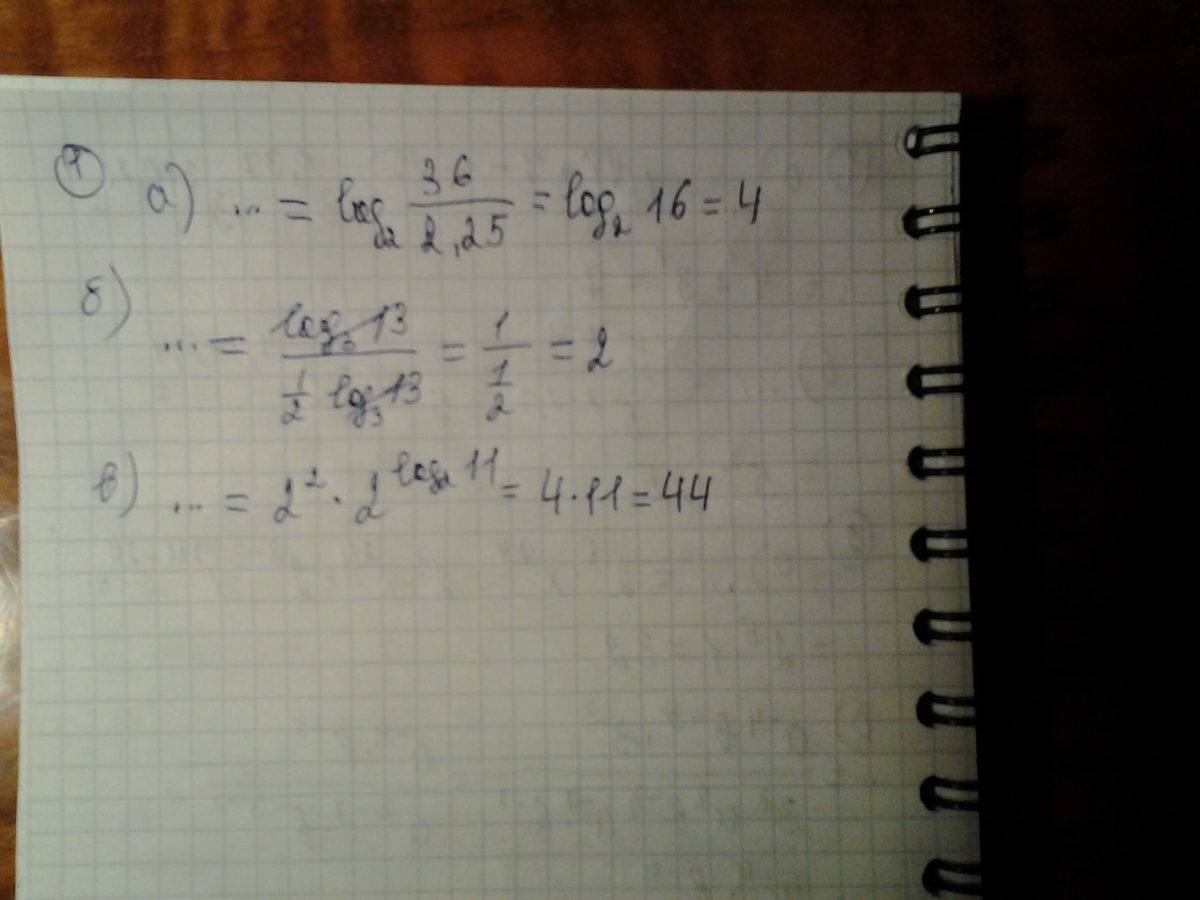 ① а) ... = log₂ 36/2,25 = log₂ 16 = 4
б) ... = log₃ 13 / (1/2 log₃ 13) = 1/(1/2) = 2
в) ... = 2² · 2^(log₂ 11) = 4 · 11 = 44